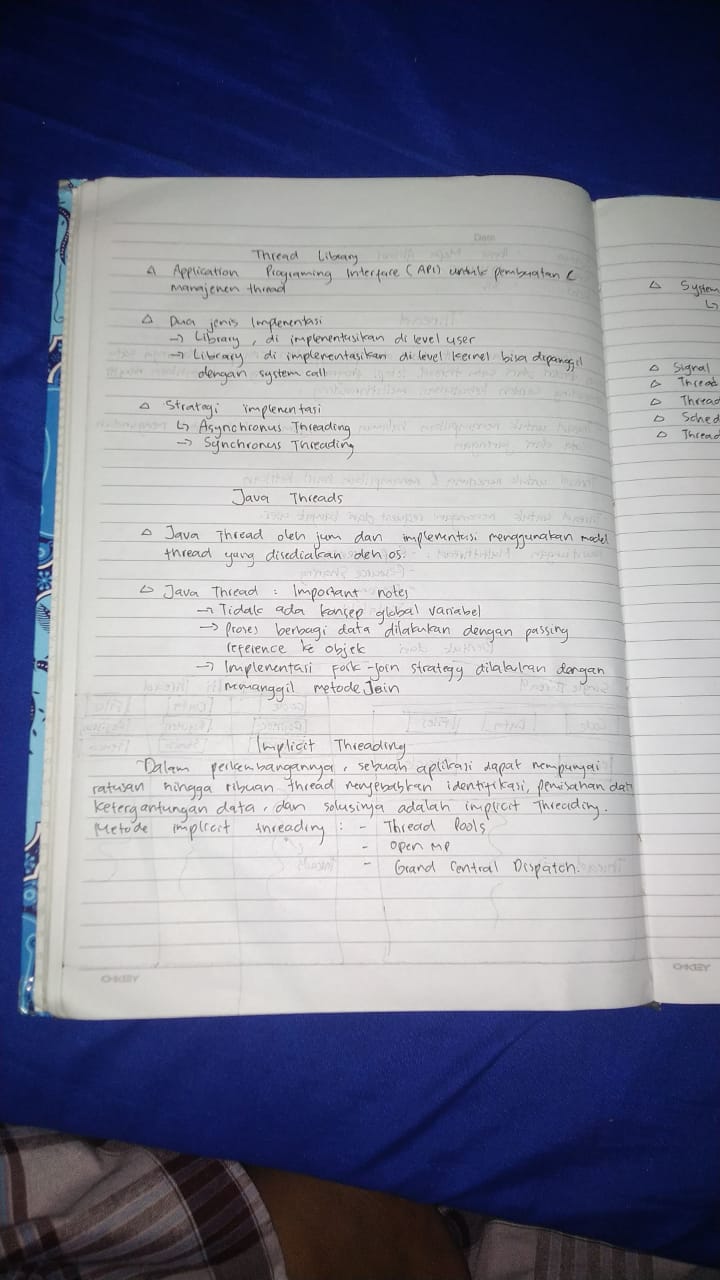 Date
Thread Library
△ Application Programing Interface (API) untuk pembuatan &
manajemen thread
△ Dua jenis Implementasi
→ Library, di implementasikan di level user
→ Library di implementasikan di level kernel bisa dipanggil
dengan system call
△ Strategi implementasi
↳ Asynchronus Threading
→ Synchronus Threading
Java Threads
△ Java Thread oleh jum dan implementasi menggunakan model
thread yang disediakan oleh os.
△ Java Thread : Important notes
→ Tidak ada konsep global variabel
→ Proses berbagi data dilakukan dengan passing
reference ke objek
→ Implementasi fork-join strategy dilakukan dengan
memanggil metode Join
Implicit Threading
Dalam perkembangannya, sebuah aplikasi dapat mempunyai
ratusan hingga ribuan thread menyebabkan identifikasi, pemisahan dan
ketergantungan data, dan solusinya adalah implicit Threading.
Metode implicit threading : - Thread Pools
- Open MP
- Grand Central Dispatch.
O-KEY
△ System
↳
△ Signal
△ Thread
△ Thread
△ Sched
△ Thread
O-KEY